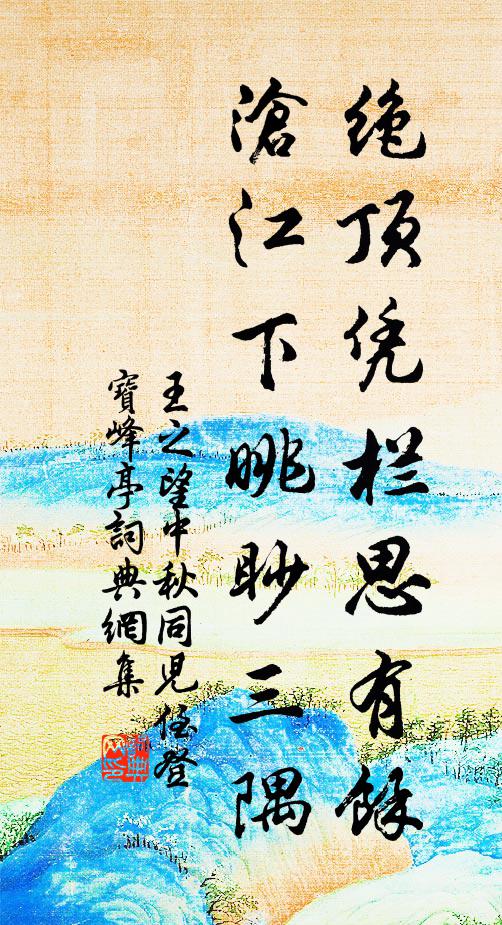 绝顶凭栏思有余
滄江下眺眇三隅
王之望中秋同兒侄登
寶峰亭詞典網集